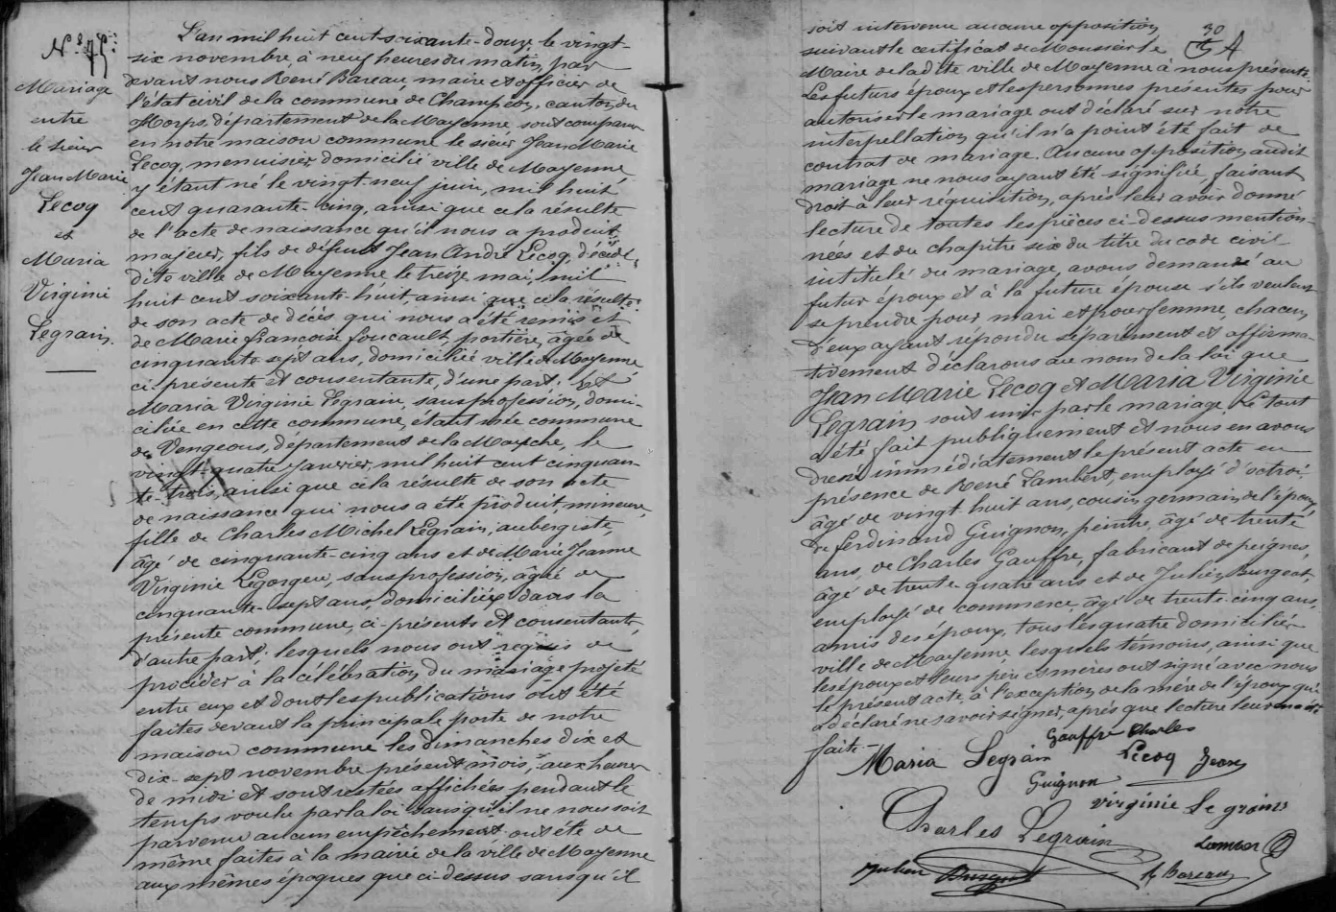 N° 75
Mariage
entre
le sieur
Jean Marie
Lecoq
et
Maria
Virginie
Legrain.
L'an mil huit cent soixante-douze, le vingt-
six novembre, à neuf heures du matin, par
devant nous René Bareau, maire et officier de
l'état civil de la commune de Champéon, canton du
Horps, département de la Mayenne, sont comparus
en notre maison commune le sieur Jean Marie
Lecoq, menuisier, domicilié ville de Mayenne
y étant né le vingt-neuf juin, mil huit
cent quarante-cinq, ainsi que cela résulte
de l'acte de naissance qu'il nous a produit,
majeur, fils de défunt Jean André Lecoq, décédé
dite ville de Mayenne le treize mai, mil
huit cent soixante-huit ainsi que cela résulte
de son acte de décès qui nous a été remis et
de Marie Françoise Foucault, portière, âgée de
cinquante-sept ans, domiciliée ville de Mayenne
ci-présente et consentante, d'une part; Et
Maria Virginie Legrain, sans profession, domi-
ciliée en cette commune, étant née commune
de Vengeons, département de la Manche, le
vingt-quatre janvier, mil huit cent cinquan-
te-trois, ainsi que cela résulte de son acte
de naissance qui nous a été produit, mineure,
fille de Charles Michel Legrain, aubergiste,
âgé de cinquante-cinq ans et de Marie Jeanne
Virginie Legorgeu, sans profession, âgée de
cinquante-sept ans, domiciliés dans la
présente commune, ci-présents et consentants
d'autre part; lesquels nous ont requis de
procéder à la célébration du mariage projeté
entre eux et dont les publications ont été
faites devant la principale porte de notre
maison commune les dimanches dix et
dix-sept novembre présent mois, aux heures
de midi et sont restées affichées pendant le
temps voulu par la loi sans qu'il ne nous soit
parvenu aucun empêchement ont été de
même faites à la mairie de la ville de Mayenne
aux mêmes époques que ci-dessus sans qu'il
soit intervenu aucune opposition
30
suivant le certificat de Monsieur le
Maire de la dite ville de Mayenne à nous présenté.
Les futurs époux et les personnes présentes pour
autoriser le mariage ont déclaré sur notre
interpellation, qu'il n'a point été fait de
contrat de mariage. Aucune opposition audit
mariage ne nous ayant été signifiée, faisant
droit à leur réquisition, après leur avoir donné
lecture de toutes les pièces ci-dessus mention-
nées et du chapitre six du titre du code civil
intitulé du mariage, avons demandé au
futur époux et à la future épouse s'ils veulent
se prendre pour mari et pour femme, chacun
d'eux ayant répondu séparément et affirma-
tivement déclarons au nom de la loi que
Jean Marie Lecoq et Maria Virginie
Legrain sont unis par le mariage. Le tout
a été fait publiquement et nous en avons
dressé immédiatement le présent acte en
présence de René Lambert, employé d'octroi
âgé de vingt huit ans, cousin germain de l'époux,
de Ferdinand Guignon, peintre, âgé de trente
ans, de Charles Gauffre, fabricant de peignes,
âgé de trente-quatre ans et de Julien Burgeot,
employé de commerce, âgé de trente-cinq ans,
amis des époux, tous les quatre domiciliés
ville de Mayenne, lesquels témoins, ainsi que
les époux et leurs père et mères ont signé avec nous
le présent acte, à l'exception de la mère de l'époux qui
a déclaré ne savoir signer, après que lecture leur en a été
faite.-
Gauffre Charles
Maria Legrain
Lecoq Jean
Guignon
virginie Le grain
Charles Legrain
Lambert
Julien Burgeot
R Bareau